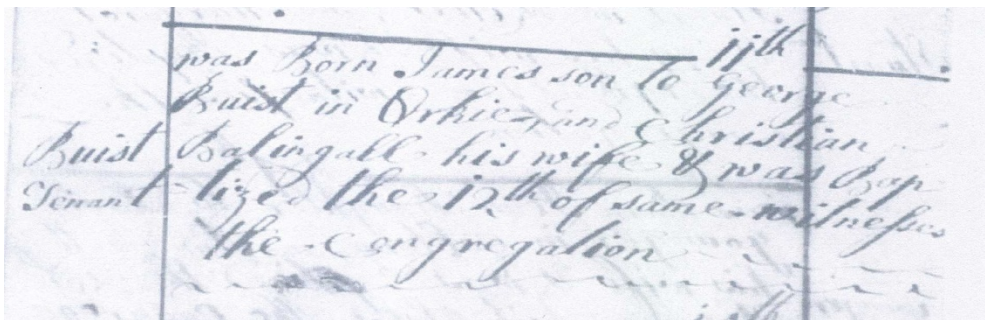 11th
was Born James son to George
Buist in Orkie, and Christian
Buist Balingall his wife & was Bap
Tenant tized the 12th of same witnesses
the Congregation